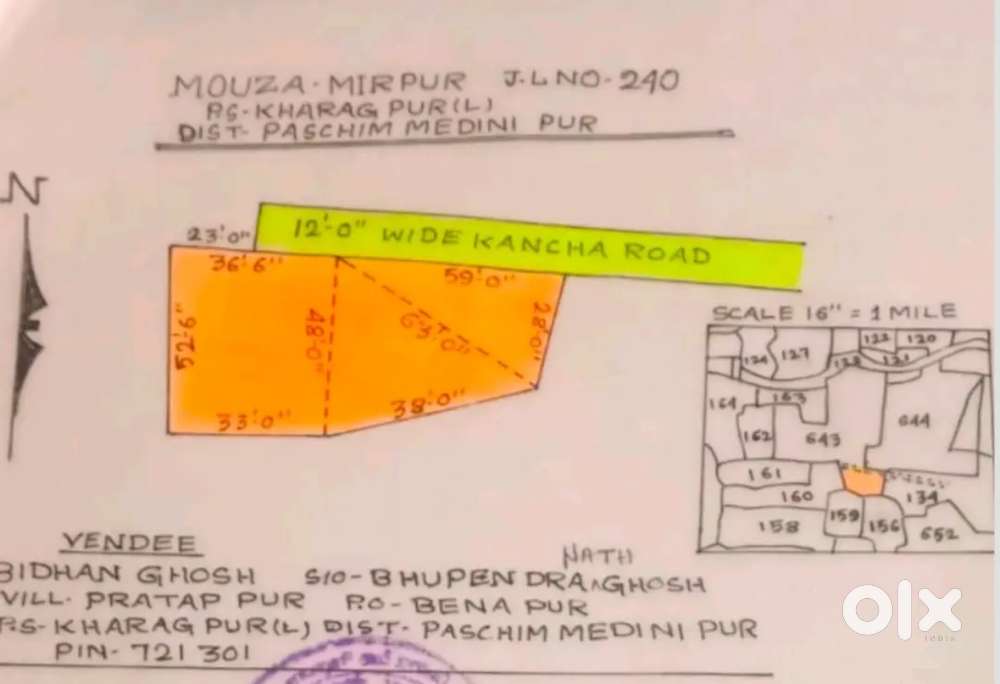 MOUZA-MIRPUR J.L NO-240
PS-KHARAG PUR(L)
DIST-PASCHIM MEDINI PUR
N
12'-0" WIDE KANCHA ROAD
23'-0"
36'-6"
59'-0"
52'-6"
48'-0"
28'-0"
33'-0"
38'-0"
SCALE 16" = 1 MILE
122 120
124 127 122 121
164 163
162 643 644
161
160 134
158 159 156 652
VENDEE
NATH
BIDHAN GHOSH S/O-BHUPENDRA^GHOSH
VILL-PRATAP PUR P.O-BENA PUR
PS-KHARAG PUR(L) DIST-PASCHIM MEDINI PUR
PIN-721 301
olx
INDIA